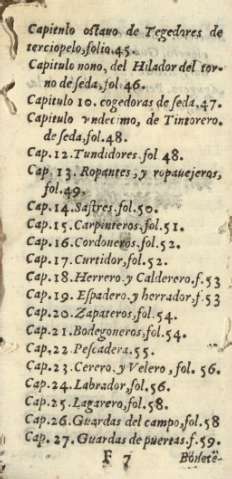 Capitulo octauo de Tegedores de
terciopelo, folio. 45.
Capitulo nono, del Hilador del tor-
no de ſeda, fol 46.
Capitulo 10. cogedoras de ſeda, 47.
Capitulo vndecimo, de Tintorero.
de ſeda, fol. 48.
Cap. 12. Tundidores. fol 48.
Cap. 13. Ropantes, y ropauejeros,
fol. 49.
Cap. 14. Saſtres. fol. 50.
Cap. 15. Carpinteros, fol. 51.
Cap. 16. Cordoneros, fol. 52.
Cap. 17. Curtidor, fol. 52.
Cap. 18. Herrero. y Calderero, f. 53
Cap. 19. Eſpadero. y herrador, f. 53
Cap. 20. Zapateros, fol. 54.
Cap. 21. Bodegoneros, fol. 54.
Cap. 22 Peſcadera, 55.
Cap. 23. Cerero. y Velero, fol. 56.
Cap. 24. Labrador, fol. 56.
Cap. 25. Lagarero, fol. 58.
Cap. 26. Guardas del campo, fol. 58
Cap. 27. Guardas de puertas. f. 59.
F 7 Bonete-